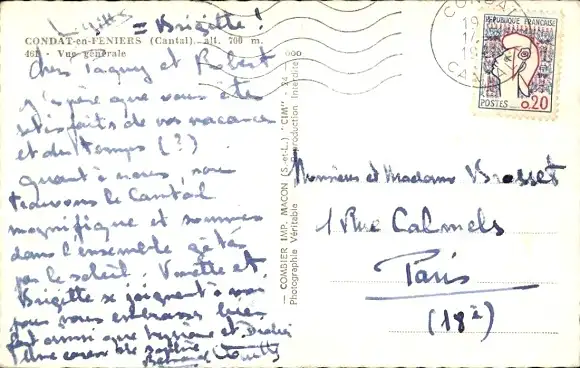 = Brigitte !
CONDAT-en-FENIERS (Cantal) alt. 700 m.
461 - Vue générale
Cher et Robert
j'espère que vous êtes
satisfaits de vos vacances
et du temps (?)
Quant à nous, nous
trouvons le Cantal
magnifique et sommes
dans l'ensemble gâtés
par le soleil. et
Brigitte se joignent à moi
pour vous embrasser bien
fort ainsi que et Didier
Une caresse de
COMBIER IMP. MACON (S.-et-L.) "CIM"
Photographie Véritable - Reproduction Interdite
CONDAT
CANTAL
REPUBLIQUE FRANÇAISE
POSTES 0,20
Monsieur et Madame Brosset
1 Rue Calmels
Paris
(18è)